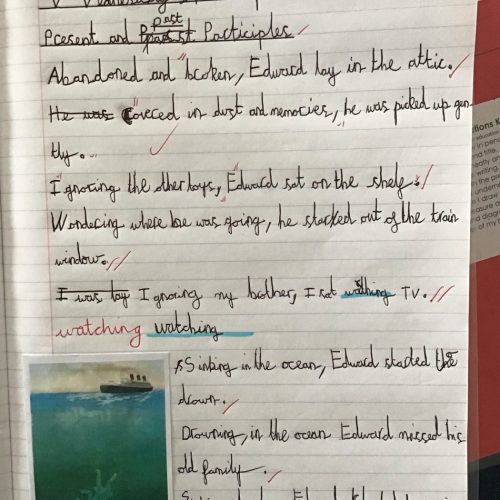 Wednesday
Present and past Participles
Abandoned and broken, Edward lay in the attic.
He was Covered in dust and memories, he was picked up gen
tly.
Ignoring the other toys, Edward sat on the shelf.
Wondering where he was going, he starked out of the train
window.
I was lay Ignoring my brother, I sat wathing TV.
watching watching
Sinking in the ocean, Edward started the
drown.
Drowning, in the ocean Edward missed his
old family.